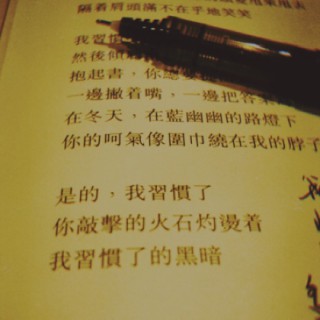 隔着肩頭滿不在乎地笑笑
我習慣
然後傾
抱起書，你總
一邊撇着嘴，一邊把答
在冬天，在藍幽幽的路燈下
你的呵氣像圍巾繞在我的脖子
是的，我習慣了
你敲擊的火石灼燙着
我習慣了的黑暗